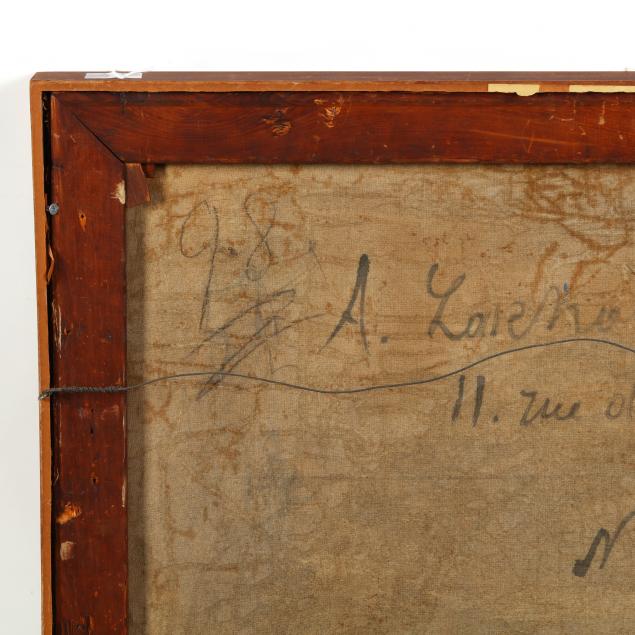 98.
A. Zarzko
11. rue d
N